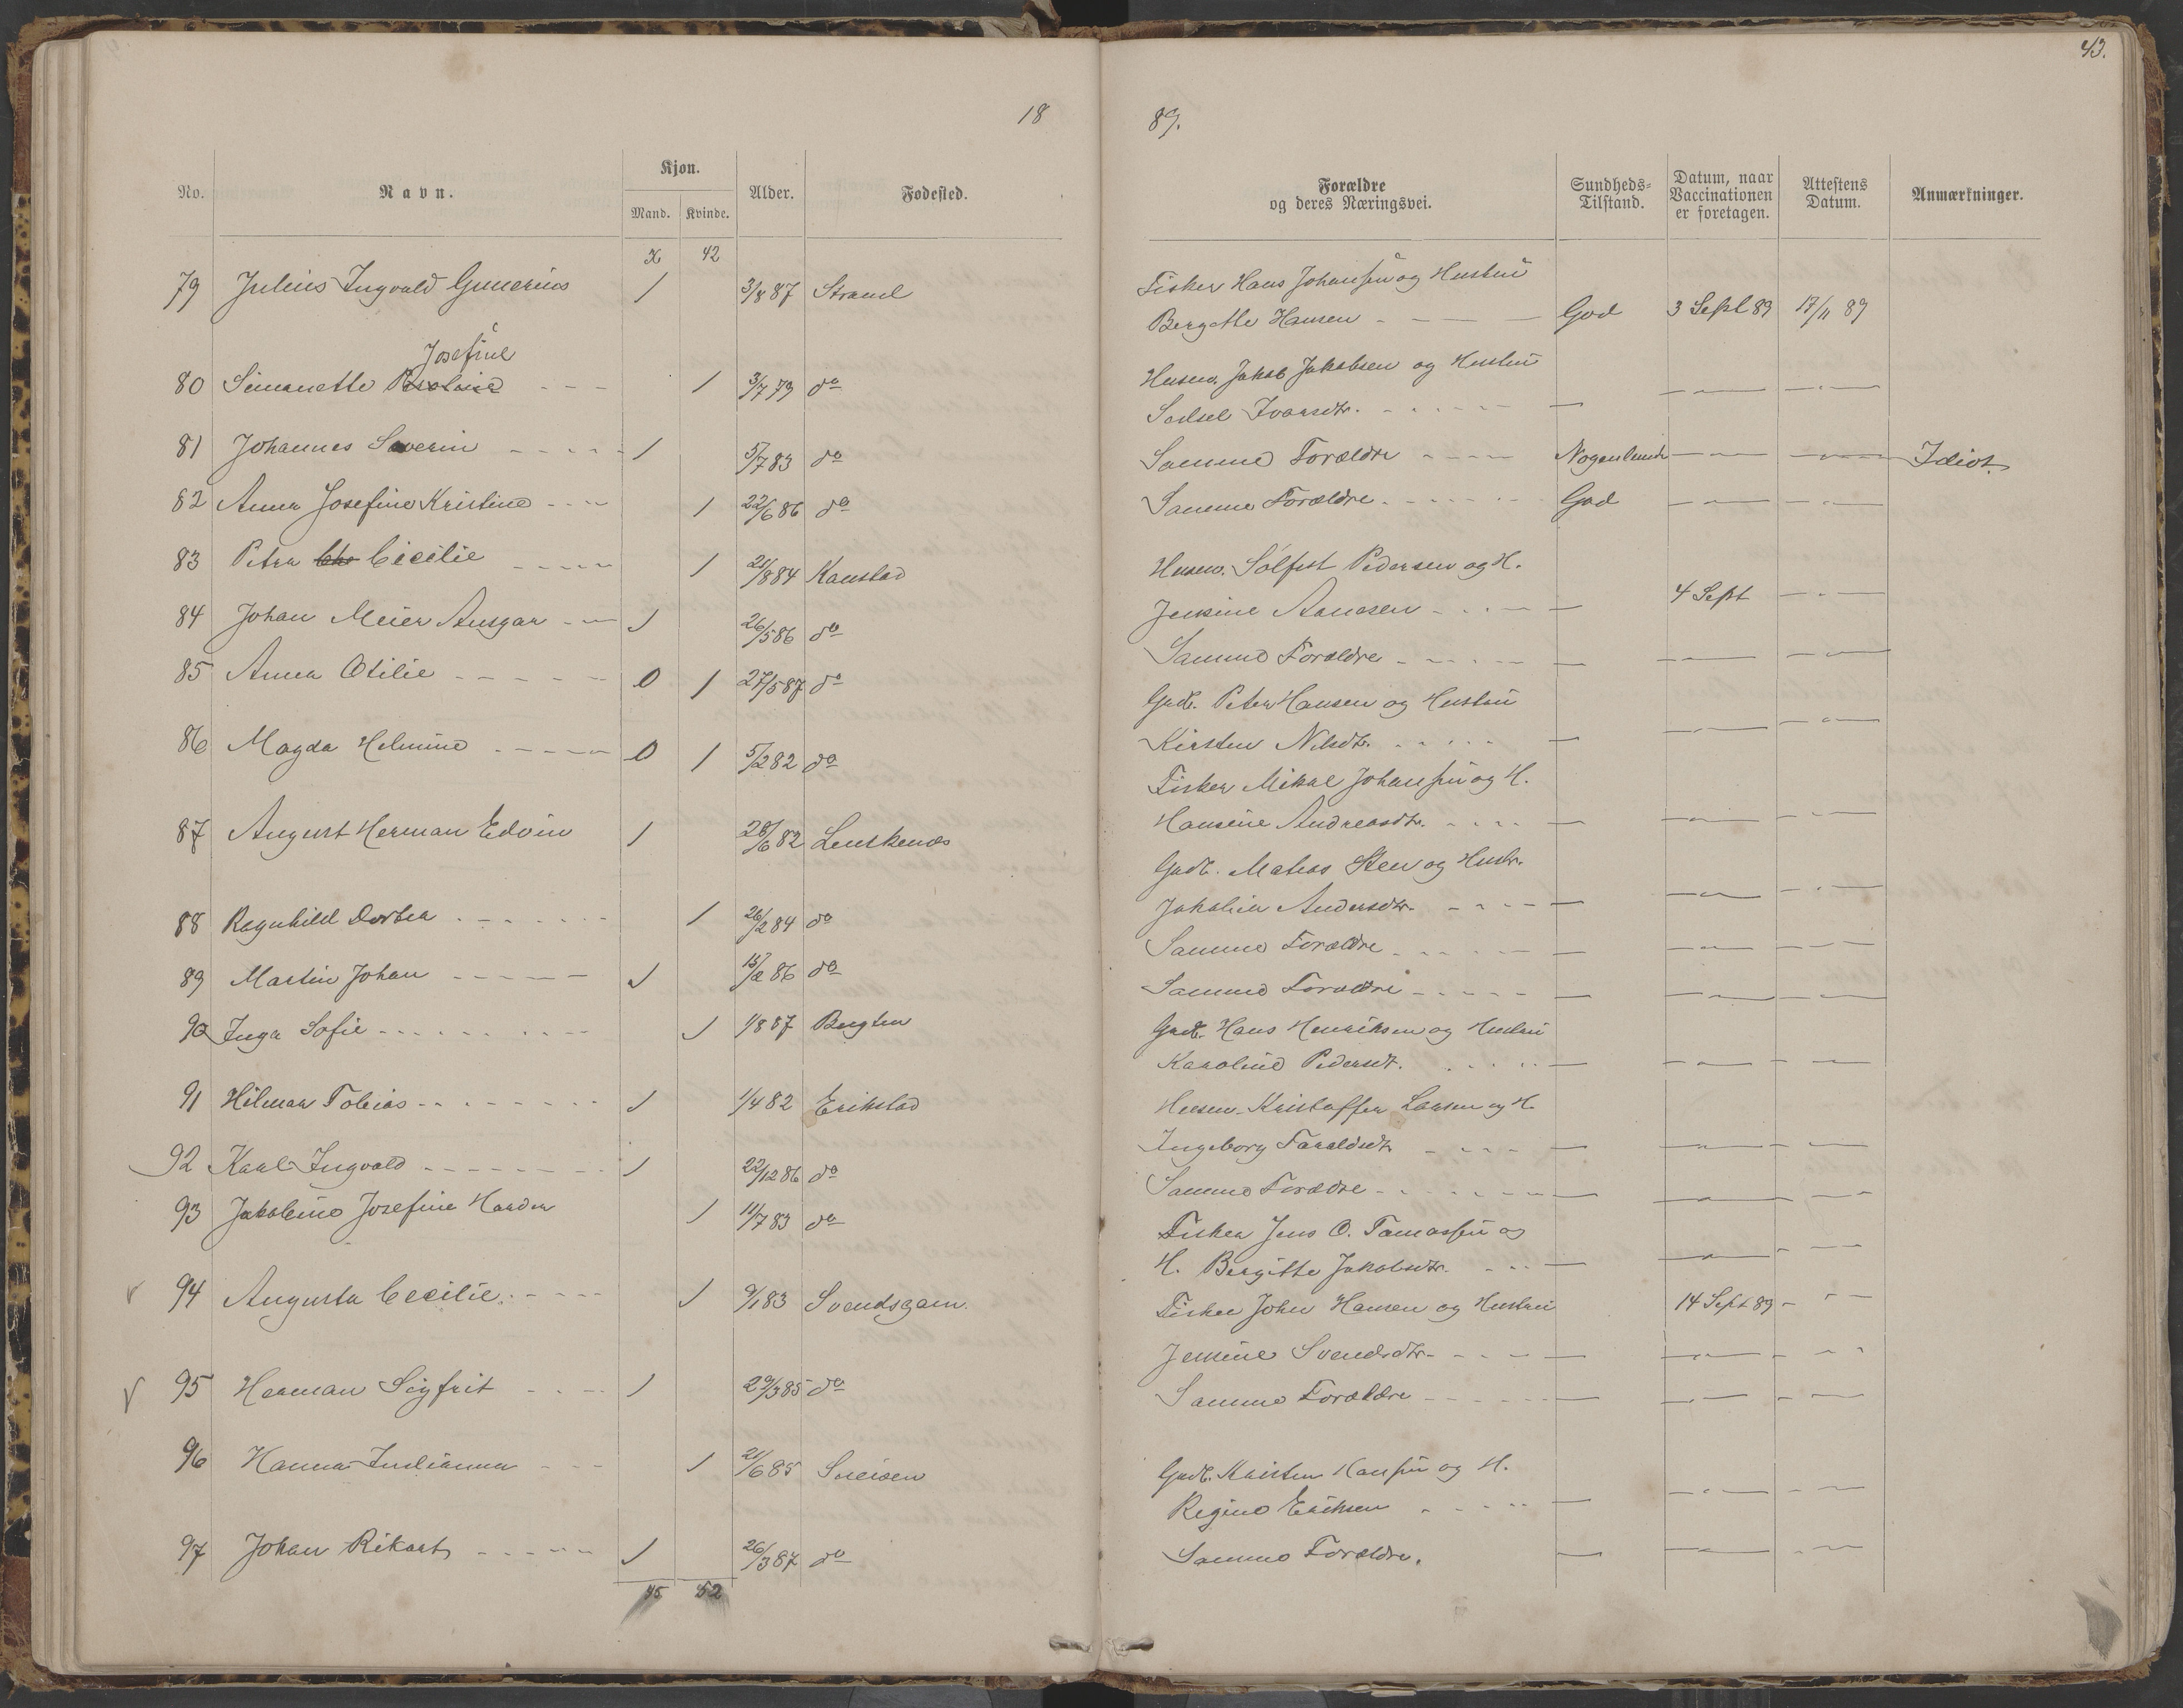 43.
18 89.
No. Navn. Kjøn. Mand. Kvinde. Alder. Fødested. Forældre og deres Næringsvei. Sundheds-Tilstand. Datum, naar Vaccinationen er foretagen. Attestens Datum. Anmærkninger.
42
79 Julius Ingvald Gunerius 1 3/8 87 Strand Fisker Hans Johansen og Hustru
Bergette Hansen - — — God 3 Sept 89 17/11 89
Josefine
80 Simonette - - - 1 3/7 79 do Husm. Jakob Jakobsen og Hustru
Sedsel Ivarsdtr. - - - - — — " — — " —
81 Johannes Severin - - - - 1 5/7 83 do Samme Forældre - - - - Nogenlunde — " — — " — Idiot
82 Anna Josefine Kristine - - - 1 22/6 86 do Samme Forældre - - - - God — " — — " —
83 Petra Cecilie - - - - 1 21/8 84 Kanstad Husm. Solfest Pedersen og H.
Jensine Aanesen - - - — 4 Sept — " —
84 Johan Meier Ansgar - - 1 26/5 86 do Samme Forældre - - - - — — " — — " —
85 Anna Otilie - - - - - 0 1 27/5 87 do Gadb. Peter Hansen og Hustru
Kirsten Nilsdtr. - - - - — — " — — " —
86 Magda Helmine - - - - 0 1 5/2 82 do Fisker Mikal Johansen og H.
Hansine Andreasdtr. - - - - — — " — — " —
87 August Herman Edvin 1 28/6 82 Lenskenæs Gadb. Matias Steen og Hustr.
Jakobia Andersdtr. - - - - — — " — — " —
88 Ragnhild Dortea - - - - - 1 26/2 84 do Samme Forældre - - - - — — " — — " —
89 Martin Johan - - - - - 1 15/2 86 do Samme Forældre - - - - — — " — — " —
90 Inga Sofie - - - - - - 1 1/8 87 Bugten Gadb. Hans Henriksen og Hustru
Karoline Pedersdt. - - - - — — " — — " —
91 Hilmar Tobias - - - - - - 1 1/4 82 Erikstad Husm. Kristoffer Larsen og H.
Ingeborg Faraldsdtr - - - — — " — — " —
92 Karl Ingvald - - - - - - 1 22/12 86 do Samme Forældre - - - - — — " — — " —
93 Jakobine Josefine Harder 1 11/7 83 do Fisker Jens O. Tomassen og
H. Bergitte Jakobsdtr. - - - — — " — — " —
94 Augusta Cecilie - - - - 1 9/1 83 Svendsgam. Fisker John Hansen og Hustru 14 Sept 89 - " —
Jensine Svendsdtr - - - - — — " — — " —
95 Herman Sigfrit - - - 1 29/3 85 do Samme Forældre - - - - — — " — — " —
96 Hanna Julianna - - - 1 21/6 85 Sneisen Gadb. Kristen Hansen og H.
Regine Eriksen - - - - — — " — — " —
97 Johan Rikart - - - - - 1 26/3 87 do Samme Forældre. — — " — — " —
45 52